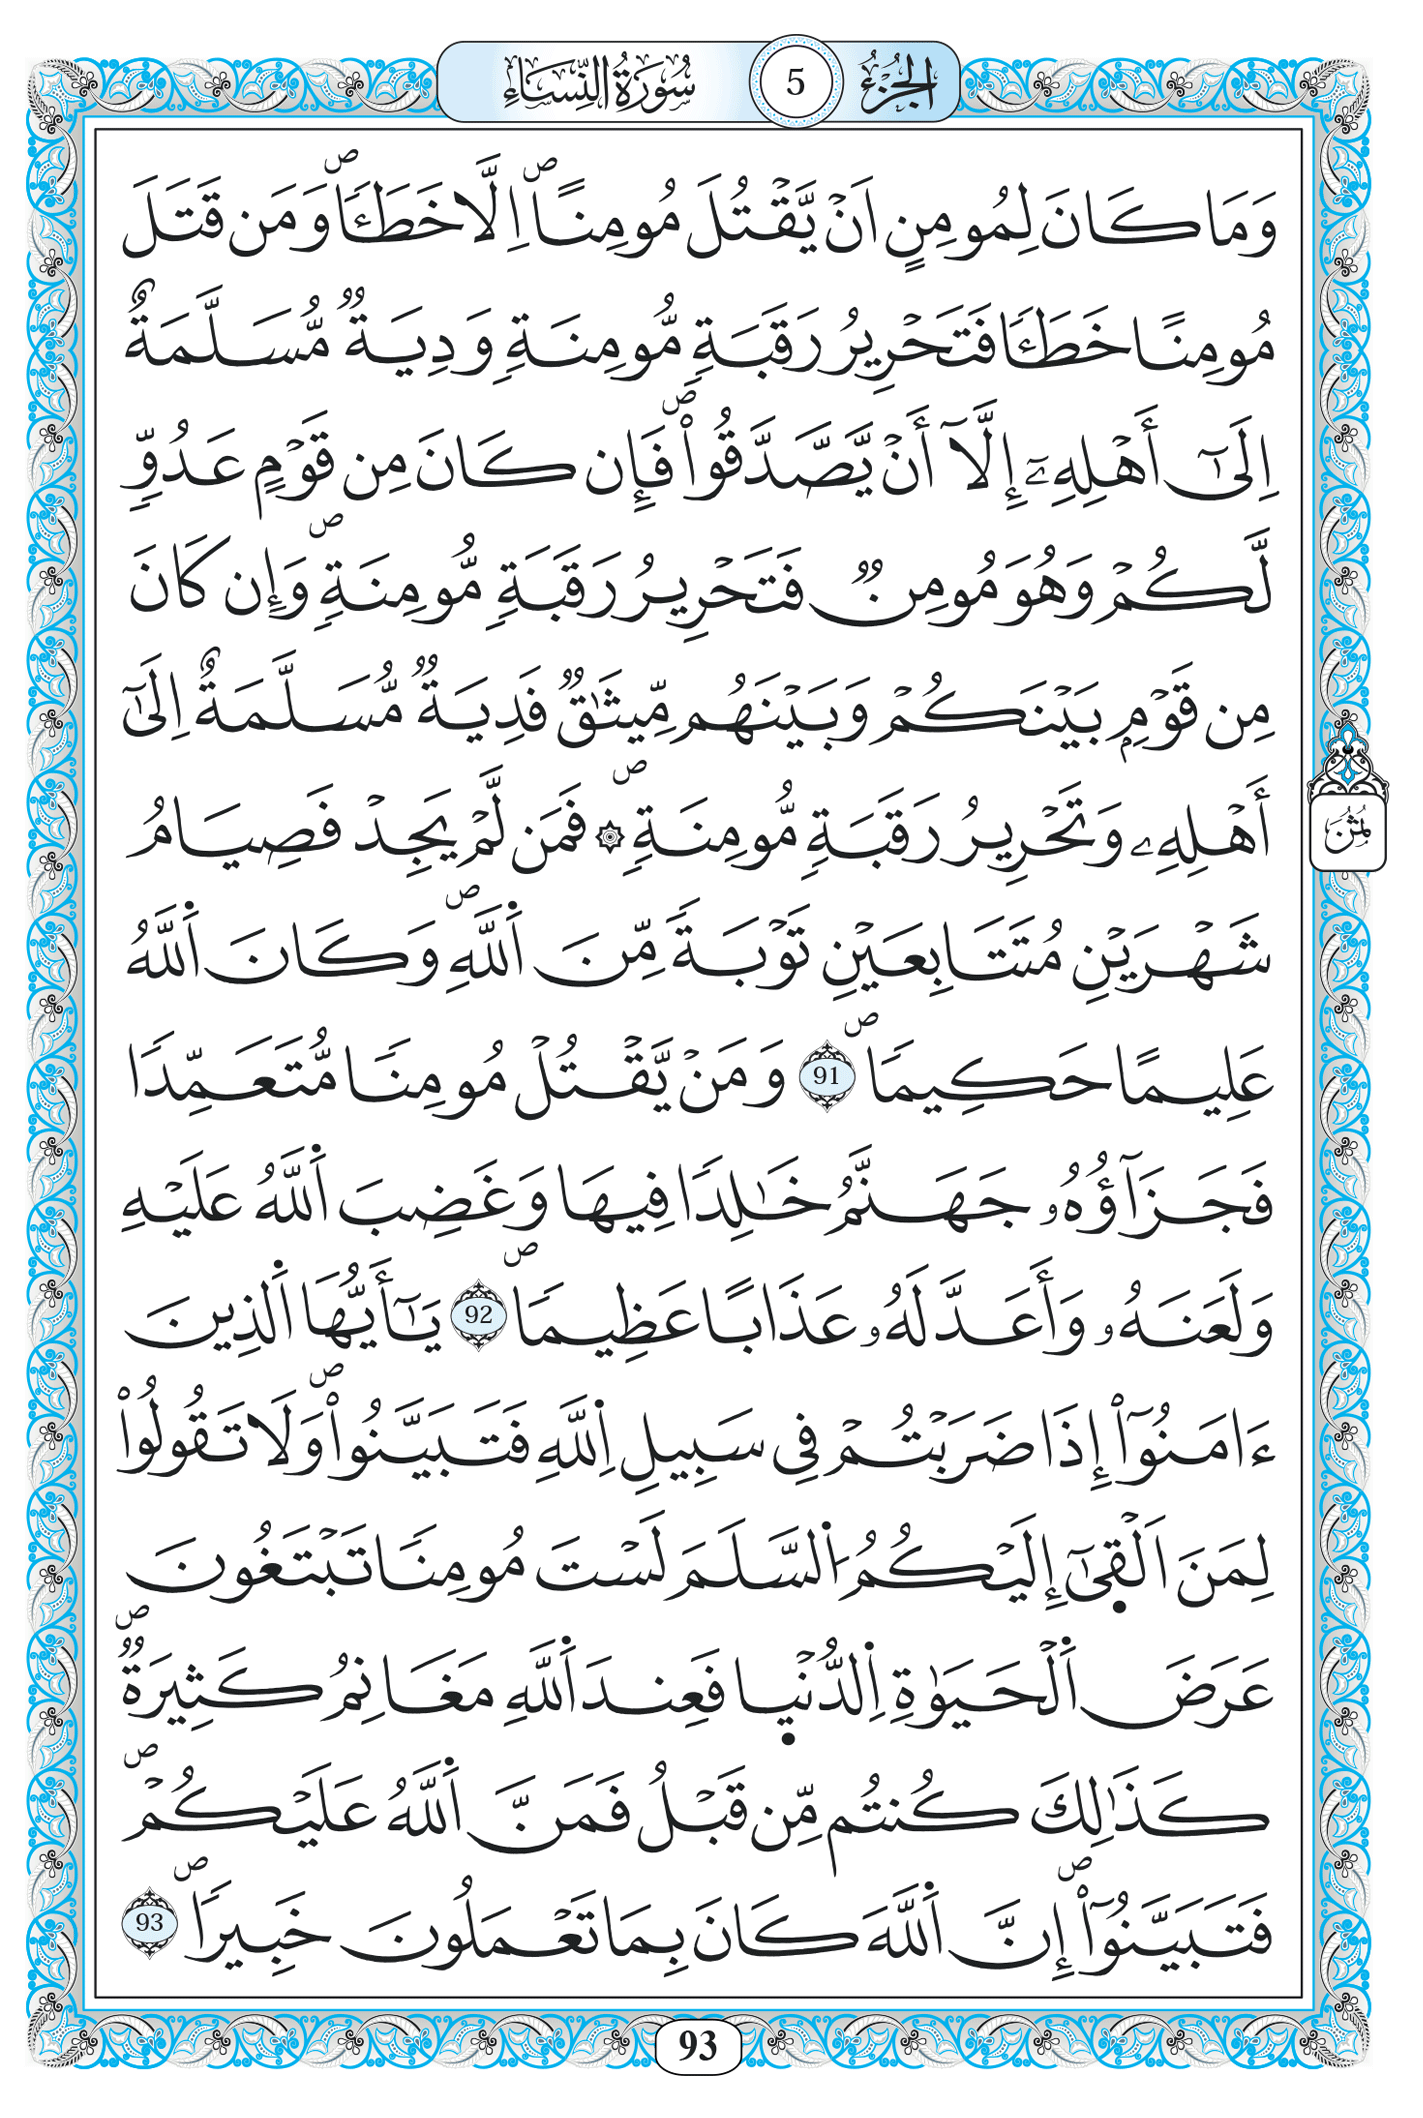 الجُزْءُ 5 سُورَةُ النِّسَاءِ
وَمَا كَانَ لِمُومِنٍ اَنْ يَّقْتُلَ مُومِنًا ۖ اِلَّا خَطَـًٔا ۖ وَمَن قَتَلَ
مُومِنًا خَطَـًٔا فَتَحْرِيرُ رَقَبَةٍ مُّومِنَةٍ وَدِيَةٌ مُّسَلَّمَةٌ
اِلَىٰٓ أَهْلِهِۦٓ إِلَّآ أَنْ يَّصَّدَّقُواْ ۖ فَإِن كَانَ مِن قَوْمٍ عَدُوٍّ
لَّكُمْ وَهُوَ مُومِنٌ فَتَحْرِيرُ رَقَبَةٍ مُّومِنَةٍ ۖ وَإِن كَانَ
مِن قَوْمِۭ بَيْنَكُمْ وَبَيْنَهُم مِّيثَٰقٌ فَدِيَةٌ مُّسَلَّمَةٌ اِلَىٰٓ
أَهْلِهِۦ وَتَحْرِيرُ رَقَبَةٍ مُّومِنَةٍ ۖ ۞ فَمَن لَّمْ يَجِدْ فَصِيَامُ
شَهْرَيْنِ مُتَتَابِعَيْنِ تَوْبَةً مِّنَ اَ۬للَّهِ ۖ وَكَانَ اَ۬للَّهُ
عَلِيمًا حَكِيمًا ۖ 91 وَمَنْ يَّقْتُلْ مُومِنًا مُّتَعَمِّدًا
فَجَزَآؤُهُۥ جَهَنَّمُ خَٰلِدًا فِيهَا وَغَضِبَ اَ۬للَّهُ عَلَيْهِ
وَلَعَنَهُۥ وَأَعَدَّ لَهُۥ عَذَابًا عَظِيمًا ۖ 92 يَٰٓأَيُّهَا اَ۬لذِينَ
ءَامَنُوٓاْ إِذَا ضَرَبْتُمْ فِي سَبِيلِ اِ۬للَّهِ فَتَبَيَّنُواْ ۖ وَلَا تَقُولُواْ
لِمَنَ اَلْقٜىٰٓ إِلَيْكُمُ اُ۬لسَّلَمَ لَسْتَ مُومِنًا تَبْتَغُونَ
عَرَضَ اَ۬لْحَيَوٰةِ اِ۬لدُّنْيٜا فَعِندَ اَ۬للَّهِ مَغَانِمُ كَثِيرَةٌ ۖ
كَذَٰلِكَ كُنتُم مِّن قَبْلُ فَمَنَّ اَ۬للَّهُ عَلَيْكُمْ ۖ
فَتَبَيَّنُوٓاْ ۖ إِنَّ اَ۬للَّهَ كَانَ بِمَا تَعْمَلُونَ خَبِيرًا ۖ 93
ثُمُن
93